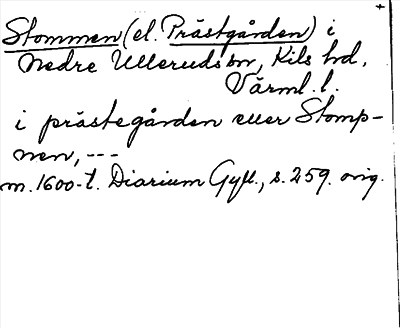 Stommen (el. Prästgården) i
Nedre Ulleruds sn, Kils hd,
Värml. l.
i prästegården eller Stomp-
nen, ---
m. 1600-t. Diarium Gyll., s. 259. orig.